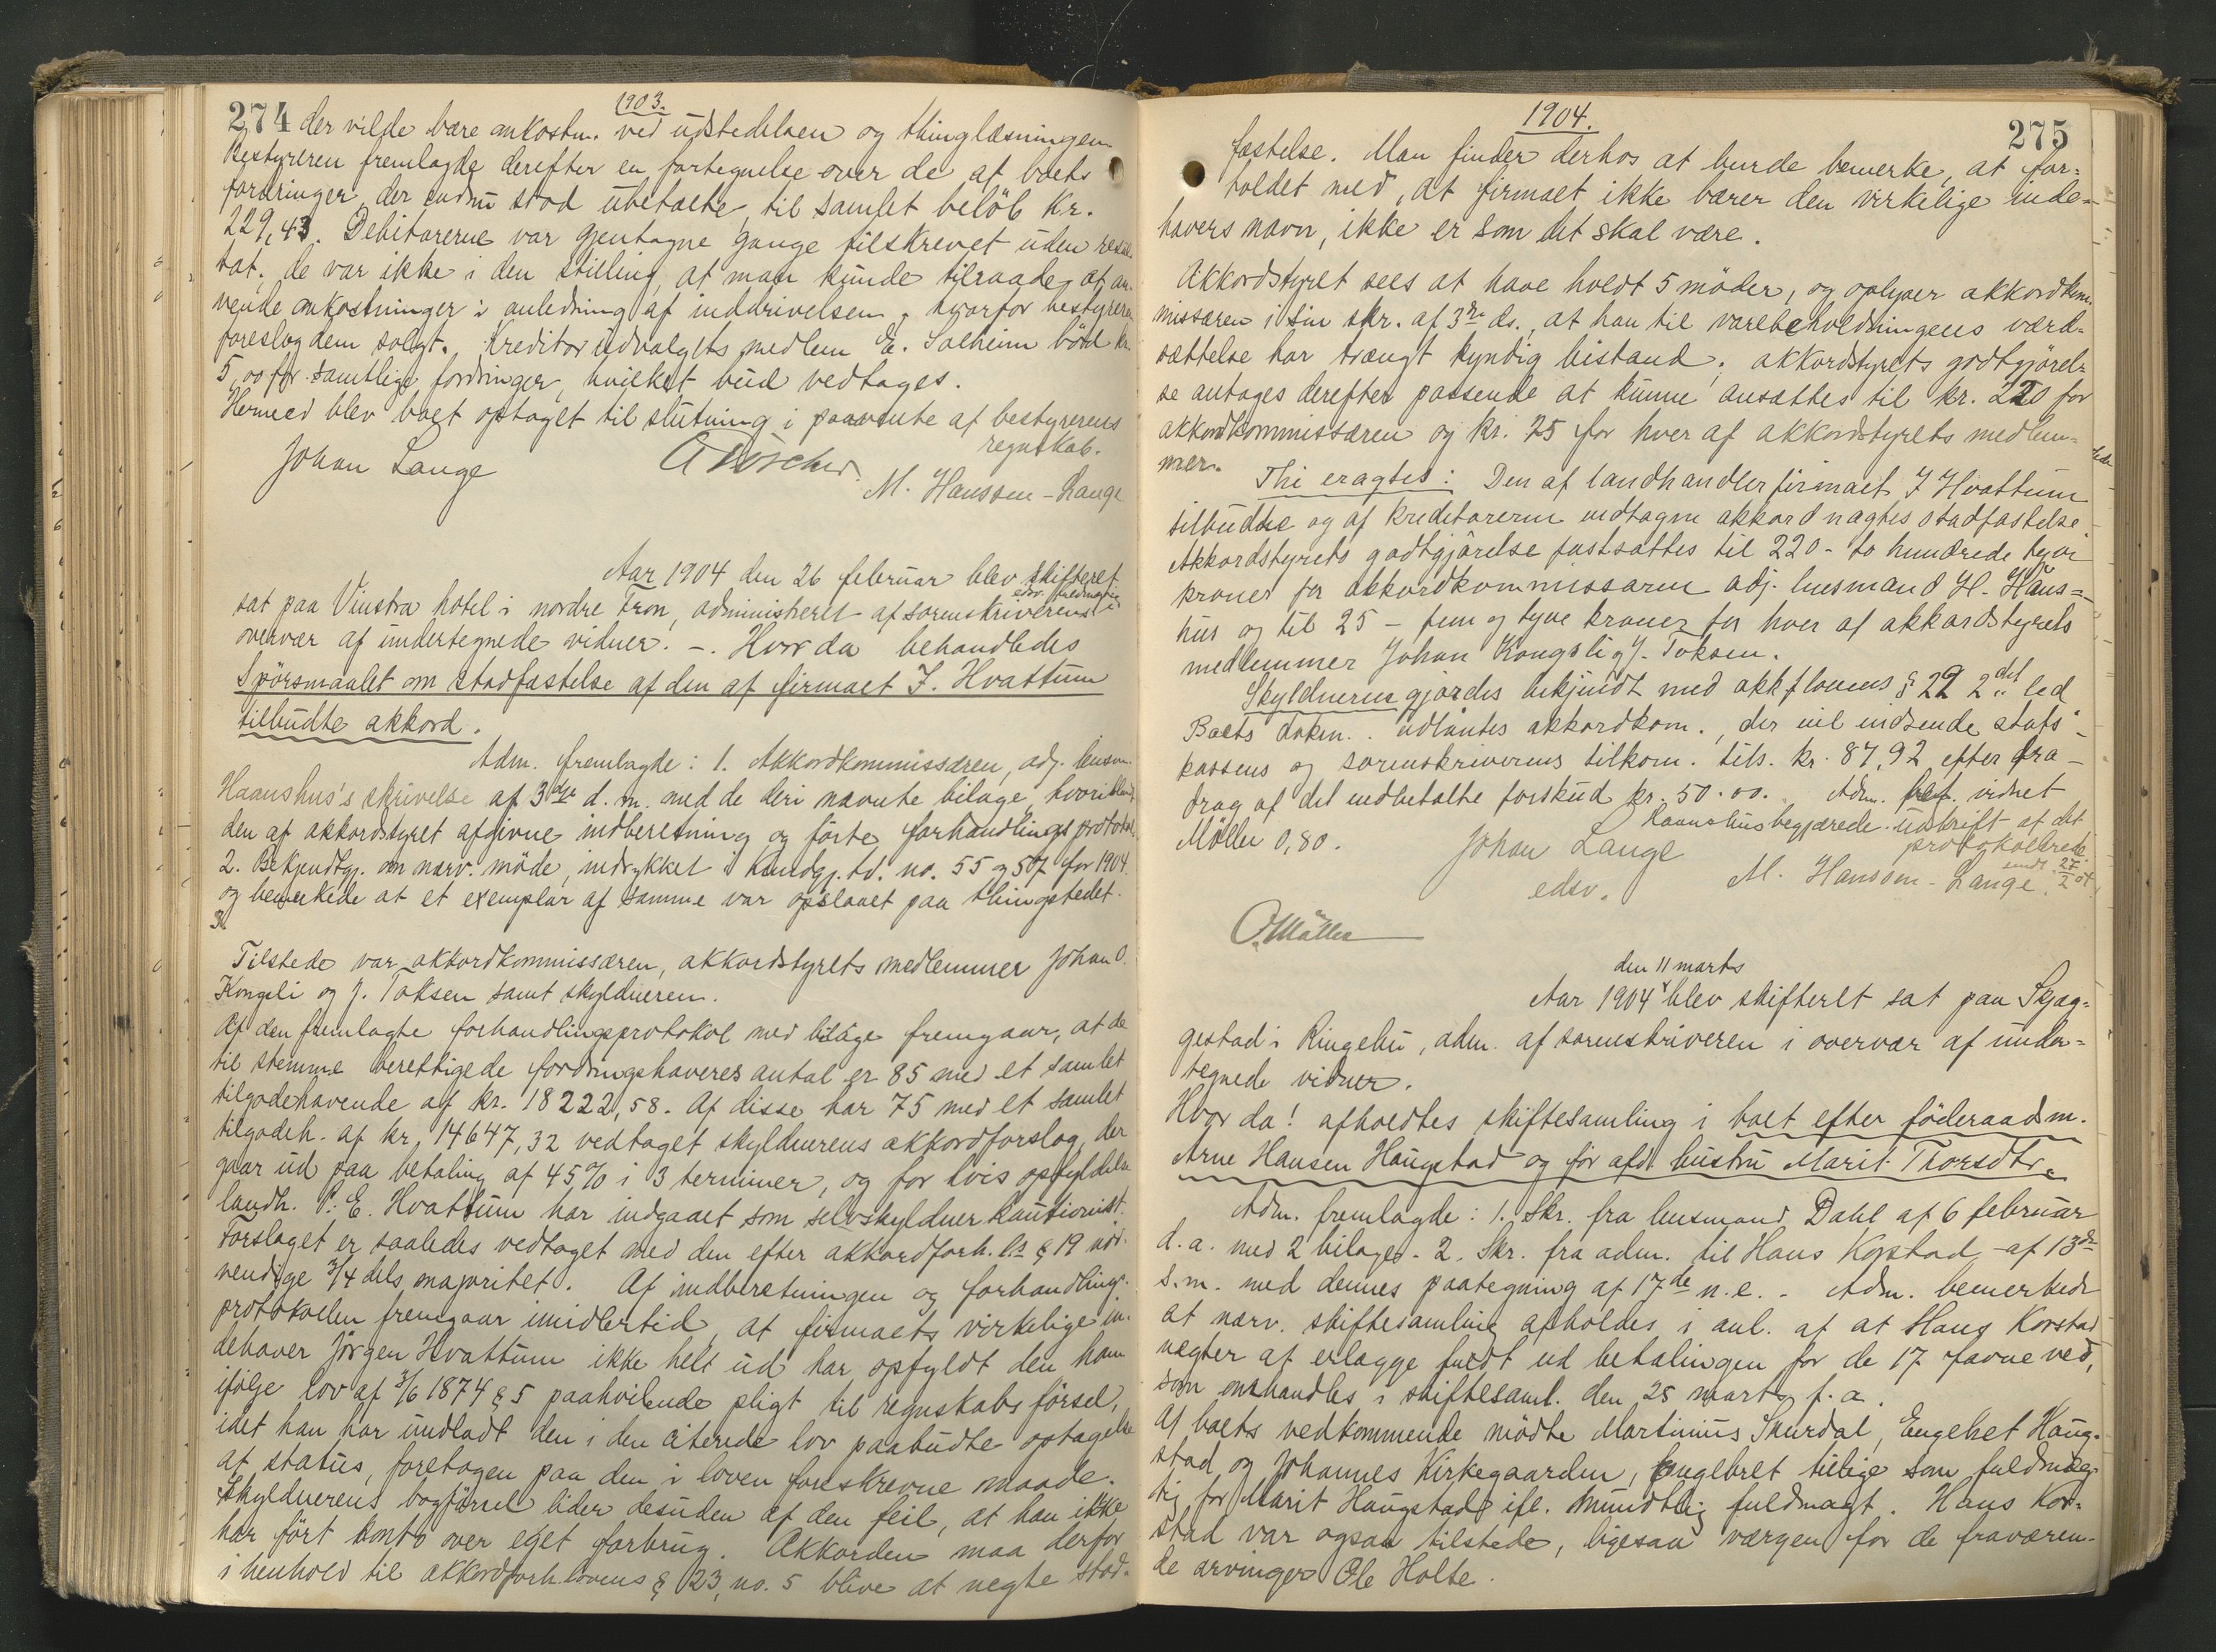 1903.
274 der vilde være omkostn. ved udstedelsen og thinglæsningen.
Bestyreren fremlagde derefter en fortegnelse over de af boets
fordringer, der endnu stod ubetalte, til samlet beløb kr.
229,43. Debitorerne var gjentagne gange tilskrevet uden resul
tat; de var ikke i den stilling, at man kunde tilraade at an
vende omkostninger i anledning af inddrivelsen, hvorfor bestyreren
foreslog dem solgt. Kreditorudvalgets medlem E. Solheim bød kr.
5,00 for samtlige fordringer, hvilket bud vedtages.
Hermed blev boet optaget til slutning i paavente af bestyrerens
regnskab.
Johan Lange
M. Hanssen-Lange
Aar 1904 den 26 februar blev skifteret
edsv. fuldmægtig i
sat paa Vinstra hotel i nordre Fron, administreret af sorenskriverens
overvær af undertegnede vidner. –. Hvor da behandledes
Spørsmaalet om stadfæstelse af den af firmaet J. Hvattum
tilbudte akkord.
Adm. fremlagde: 1. Akkordkommissæren, adj. lensm.
Haanshus's skrivelse af 3die d.m. med de deri nævnte bilage, hvoriblandt
den af akkordstyret afgivne indberetning og førte forhandlingsprotokol.
2. Bekjendtgj. om nærv. møde, indrykket i Kundgj.td. no. 55 og 57 for 1904
og bemerkede at et exemplar af samme var opslaaet paa thingstedet.
3.
Tilstede var akkordkommissæren, akkordstyrets medlemmer Johan O.
Kongsli og J. Toksen samt skyldneren.
Af den fremlagte forhandlingsprotokol med bilage fremgaar, at de
til stemme berettigede fordringshaveres antal er 85 med et samlet
tilgodehavende af kr. 18222,58. Af disse har 75 med et samlet
tilgodeh. af kr. 14647,32 vedtaget skyldnerens akkordforslag, der
gaar ud paa betaling af 45% i 3 terminer, og for hvis opfyldelse
landh. P. E. Hvattum har indgaaet som selvskyldner kautionist.
Forslaget er saaledes vedtaget med den efter akkordforh. ls § 19 nød-
vendige 3/4 dels majoritet. Af indberetningen og forhandlings-
protokollen fremgaar imidlertid, at firmaets virkelige in-
dehaver Jørgen Hvattum ikke helt ud har opfyldt den ham
ifølge lov af 3/6 1874 § 5 paahvilende pligt til regnskabsførsel,
idet han har undladt den i den citerede lov paabudte optagelse
af status, foretagen paa den i loven foreskrevne maade.
Skyldnerens bogførsel lider desuden af den feil, at han ikke
har ført konto over eget forbrug. Akkorden maa derfor
i henhold til akkordforh.lovens § 23, no. 5 blive at negte stad-
1904.
275
fæstelse. Man finder derhos at burde bemerke, at for=
holdet med, at firmaet ikke bærer den virkelige inde=
havers navn, ikke er som det skal være.
Akkordstyret sees at have holdt 5 møder, og oplyser akkordkom
missæren i sin skr. af 3die ds., at han til varebeholdningens værd=
sættelse har trængt kyndig bistand; akkordstyrets godtgjørel=
se antages derefter passende at kunne ansættes til kr. 220 for
akkordkommissæren og kr. 25 for hver af akkordstyrets medlem=
mer.
Thi eragtes: Den af landhandlerfirmaet J Hvattum
tilbudte og af kreditorerne vedtagne akkord nægtes stadfæstelse
Akkordstyrets godtgjørelse fastsættes til 220 – to hundrede tyve
kroner for akkordkommissæren adj. lensmand H. Haans=
hus og til 25 – fem og tyve kroner for hver af akkordstyrets
medlemmer Johan Kongsli og J. Toksen.
Skyldneren gjordes bekjendt med akkflovens § 22 2det led
Boets dokm. udlåntes akkordkom., der vil indsende stats-
kassens og sorenskriverens tilkom. tils. kr. 87,92 efter fra-
drag af det indbetalte forskud kr. 50.00. Adm. vidnet
Møller 0,80.
Haanshus begjærede udskrift af det
protokollerede
sendt 27/2 04.
Johan Lange
edsv.
M. Hanssen-Lange
O. Møller
den 11 marts
Aar 1904 blev skifteret sat paa Skjæg=
gestad i Ringebu, adm. af sorenskriveren i overvær af under=
tegnede vidner.
Hvor da! afholdtes skiftesamling i boet efter føderaadsm.
Arne Hansen Haugstad og før afd. hustru Marit Thorsdtr.
Adm. fremlagde: 1. Skr. fra lensmand Dahl af 6 februar
d.a. med 2 bilager. 2. Skr. fra adm. til Hans Korstad af 13de
s.m. med dennes paategning af 17de n.e. . Adm. bemerkede
at nærv. skiftesamling afholdes i anl. af at Hans Korstad
negter at erlægge fuldt ud betalingen for de 17 favne ved,
som omhandles i skiftesaml. den 25 marts f.a.
Af boets vedkommende mødte Martinius Skurdal, Engebret Haug-
stad og Johannes Kirkegaarden, Engebret tillige som fuldmæg-
tig for Marit Haugstad ifl. mundtlig fuldmagt. Hans Kor=
stad var ogsaa tilstede, ligesaa værgen for de fraværen-
de arvinger Ole Holte.